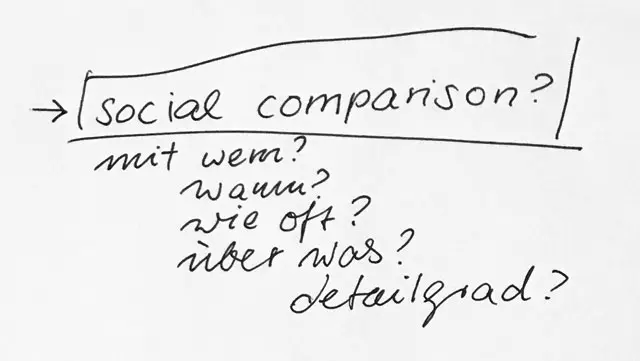 → social comparison?
mit wem?
wann?
wie oft?
über was?
detailgrad?